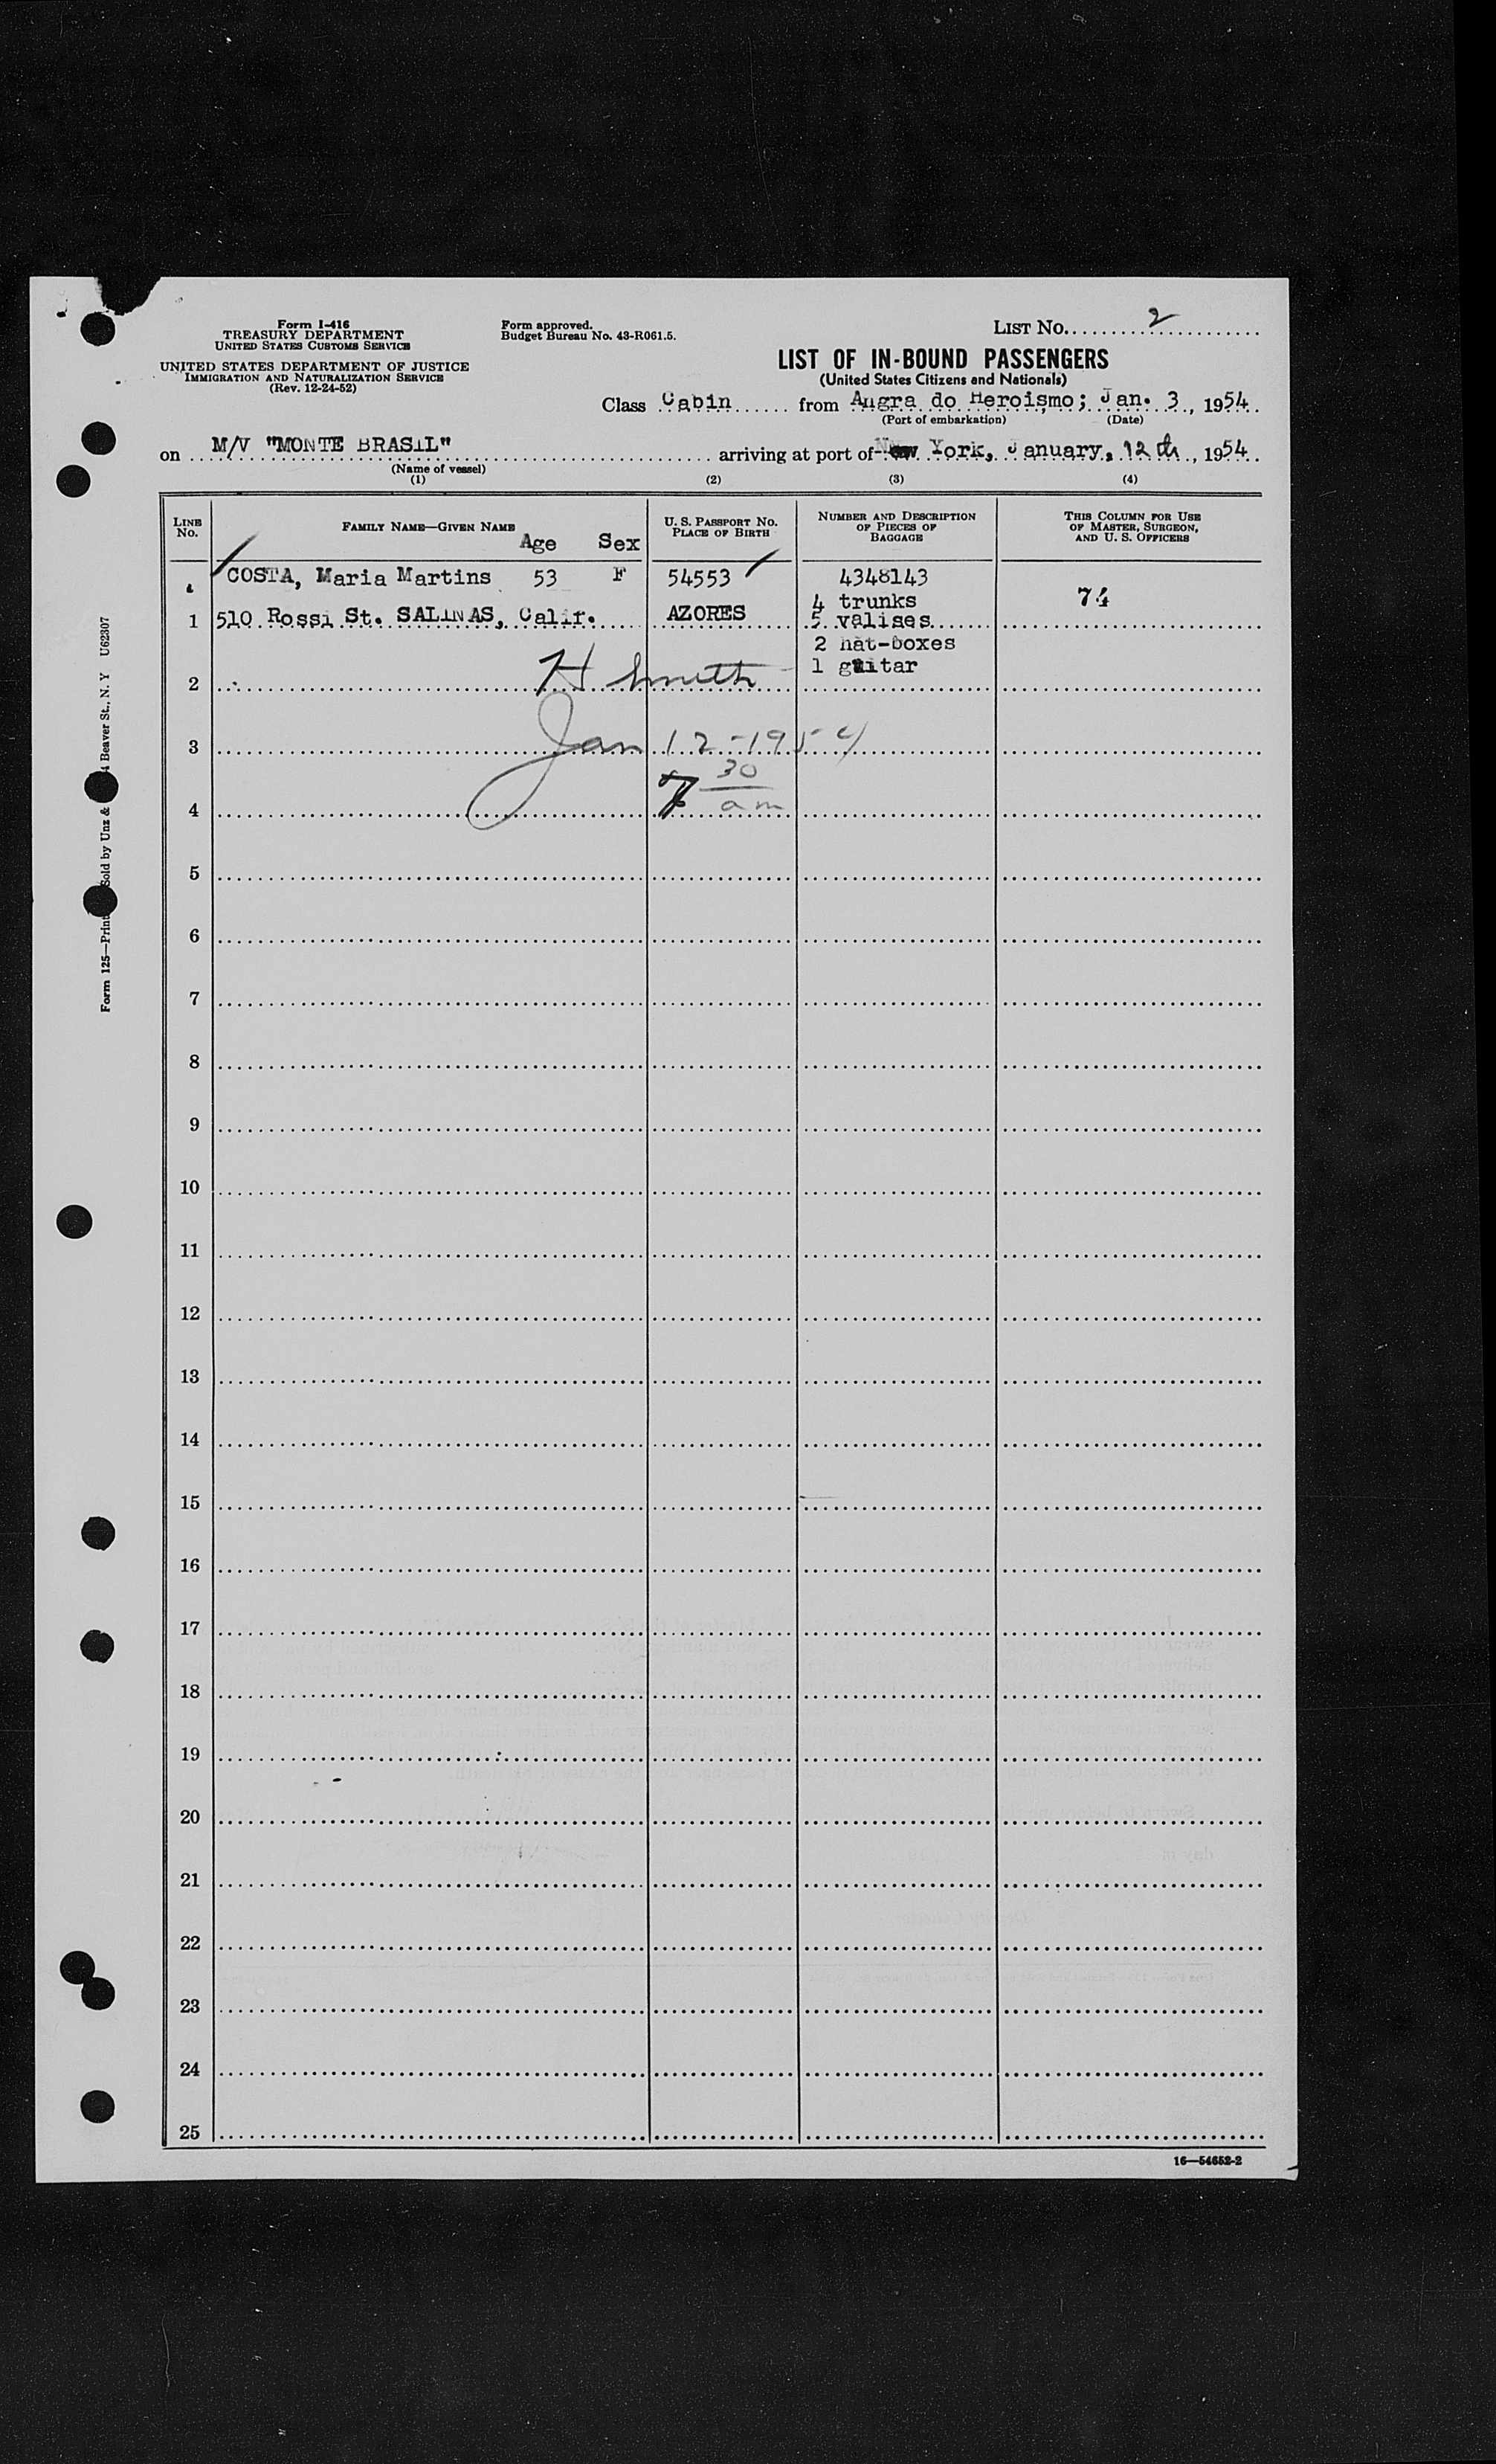 Form I-416
TREASURY DEPARTMENT
UNITED STATES CUSTOMS SERVICE
UNITED STATES DEPARTMENT OF JUSTICE
IMMIGRATION AND NATURALIZATION SERVICE
(Rev. 12-24-52)
Form approved.
Budget Bureau No. 43-R061.5.
LIST NO. 2
LIST OF IN-BOUND PASSENGERS
(United States Citizens and Nationals)
Class Cabin from Angra do Heroismo; Jan. 3, 1954
(Port of embarkation) (Date)
on M/V "MONTE BRASIL" arriving at port of New York, January, 12th, 1954
(Name of vessel)
(1) (2) (3) (4)
LINE NO. FAMILY NAME—GIVEN NAME Age Sex U. S. PASSPORT NO. PLACE OF BIRTH NUMBER AND DESCRIPTION OF PIECES OF BAGGAGE THIS COLUMN FOR USE OF MASTER, SURGEON, AND U. S. OFFICERS
COSTA, Maria Martins 53 F 54553 4348143
4 trunks 74
1 510 Rossi St. SALINAS, Calif. AZORES 5 valises
2 hat-boxes
1 guitar
2 H Smith
3 Jan 12-1954
4 7 30 am
5
6
7
8
9
10
11
12
13
14
15
16
17
18
19
20
21
22
23
24
25
16—54652-2
Form 125—Print Sold by Unz & 4 Beaver St., N. Y U62307